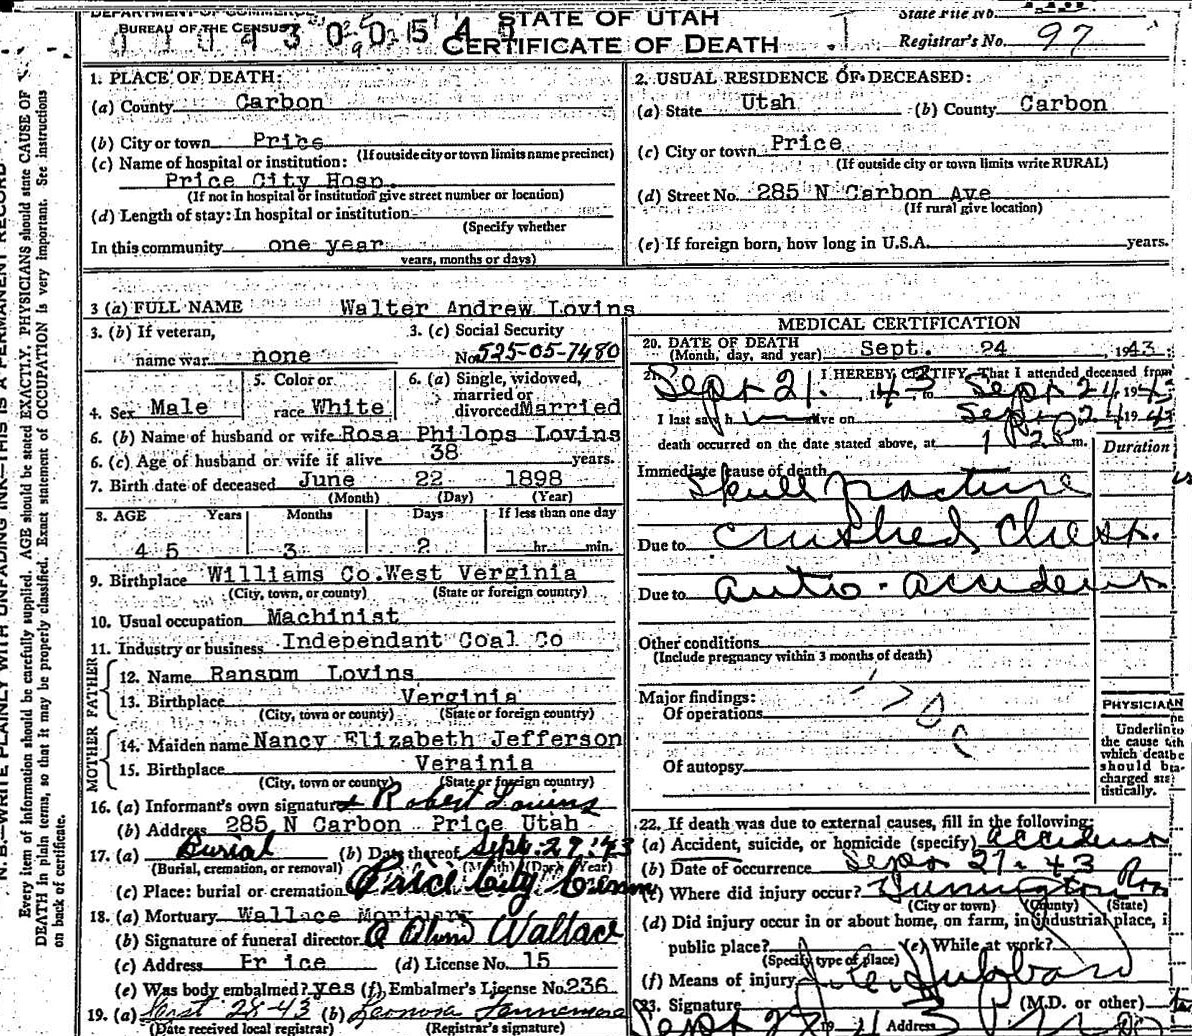 DEPARTMENT OF COMMERCE
BUREAU OF THE CENSUS
STATE OF UTAH
CERTIFICATE OF DEATH
State File No.
Registrar's No. 97
N. B.—WRITE PLAINLY WITH UNFADING INK—THIS IS A PERMANENT RECORD
Every item of information should be carefully supplied. AGE should be stated EXACTLY. PHYSICIANS should state CAUSE OF
DEATH in plain terms, so that it may be properly classified. Exact statement of OCCUPATION is very important. See instructions
on back of certificate.
1. PLACE OF DEATH:
(a) County Carbon
(b) City or town Price
(If outside city or town limits name precinct)
(c) Name of hospital or institution:
Price City Hosp.
(If not in hospital or institution give street number or location)
(d) Length of stay: In hospital or institution
(Specify whether
In this community one year
years, months or days)
2. USUAL RESIDENCE OF DECEASED:
(a) State Utah (b) County Carbon
(c) City or town Price
(If outside city or town limits write RURAL)
(d) Street No. 285 N Carbon Ave
(If rural give location)
(e) If foreign born, how long in U.S.A. years.
3 (a) FULL NAME Walter Andrew Lovins
3. (b) If veteran,
name war none
3. (c) Social Security
No. 525-05-7480
4. Sex Male
5. Color or
race White
6. (a) Single, widowed,
married or
divorced Married
6. (b) Name of husband or wife Rosa Philops Lovins
6. (c) Age of husband or wife if alive 38 years.
7. Birth date of deceased June 22 1898
(Month) (Day) (Year)
8. AGE Years Months Days If less than one day
45 3 2 hr. min.
9. Birthplace Williams Co. West Verginia
(City, town, or county) (State or foreign country)
10. Usual occupation Machinist
11. Industry or business Independant Coal Co
FATHER
12. Name Ransum Lovins
13. Birthplace Verginia
(City, town or county) (State or foreign country)
MOTHER
14. Maiden name Nancy Elizabeth Jefferson
15. Birthplace Verainia
(City, town or county) (State or foreign country)
16. (a) Informant's own signature Robert Lovins
(b) Address 285 N Carbon Price Utah
17. (a) Burial (b) Date thereof Sept. 27. 43
(Burial, cremation, or removal) (Month) (Day) (Year)
(c) Place: burial or cremation Price City
18. (a) Mortuary Wallace Mortuary
(b) Signature of funeral director Wallace
(c) Address Price (d) License No. 15
(e) Was body embalmed? yes (f) Embalmer's License No. 236
19. (a) 28-43 (b) Leonora
(Date received local registrar) (Registrar's signature)
MEDICAL CERTIFICATION
20. DATE OF DEATH
(Month, day, and year) Sept. 24, 1943
21. I HEREBY CERTIFY, That I attended deceased from
Sept 21, 1943 to Sept 24, 194
I last saw h alive on Sept 24 194
death occurred on the date stated above, at m.
Duration
Immediate cause of death
Skull fracture
Due to crushed chest.
Due to auto-accident
Other conditions
(Include pregnancy within 3 months of death)
Major findings:
Of operations
Of autopsy
PHYSICIAN
Underline
the cause
which death
should be
charged sta
tistically.
22. If death was due to external causes, fill in the following:
(a) Accident, suicide, or homicide (specify) accident
(b) Date of occurrence Sept 21-43
(c) Where did injury occur?
(City or town) (County) (State)
(d) Did injury occur in or about home, on farm, in industrial place, i
public place? (e) While at work?
(Specify type of place)
(f) Means of injury
23. Signature Hubbard (M.D. or other)
Sept 27 Address